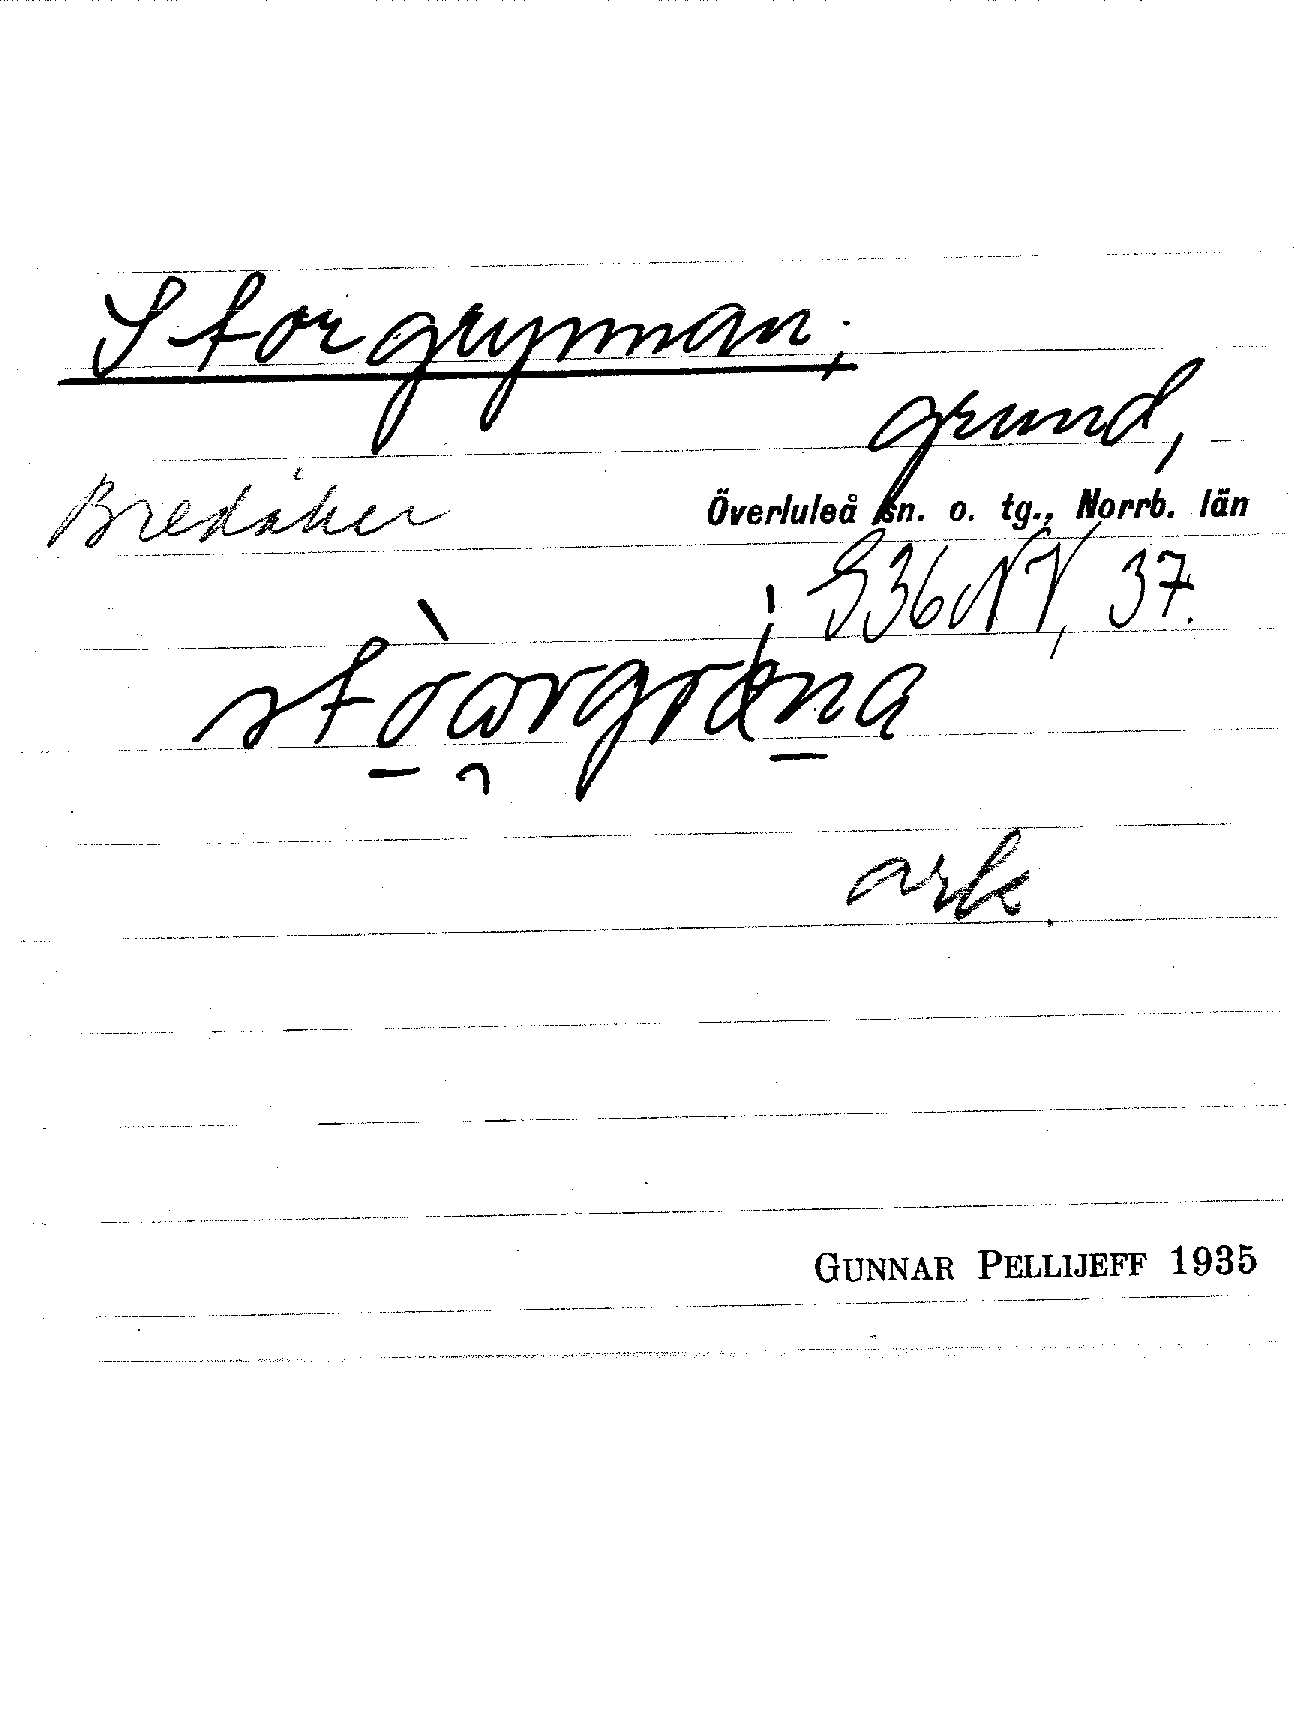 Storgrynnan,
grund,
Bredåker
Överluleå sn. o. tg., Norrb. län
S36NV, 37.
ark.
GUNNAR PELLIJEFF 1935